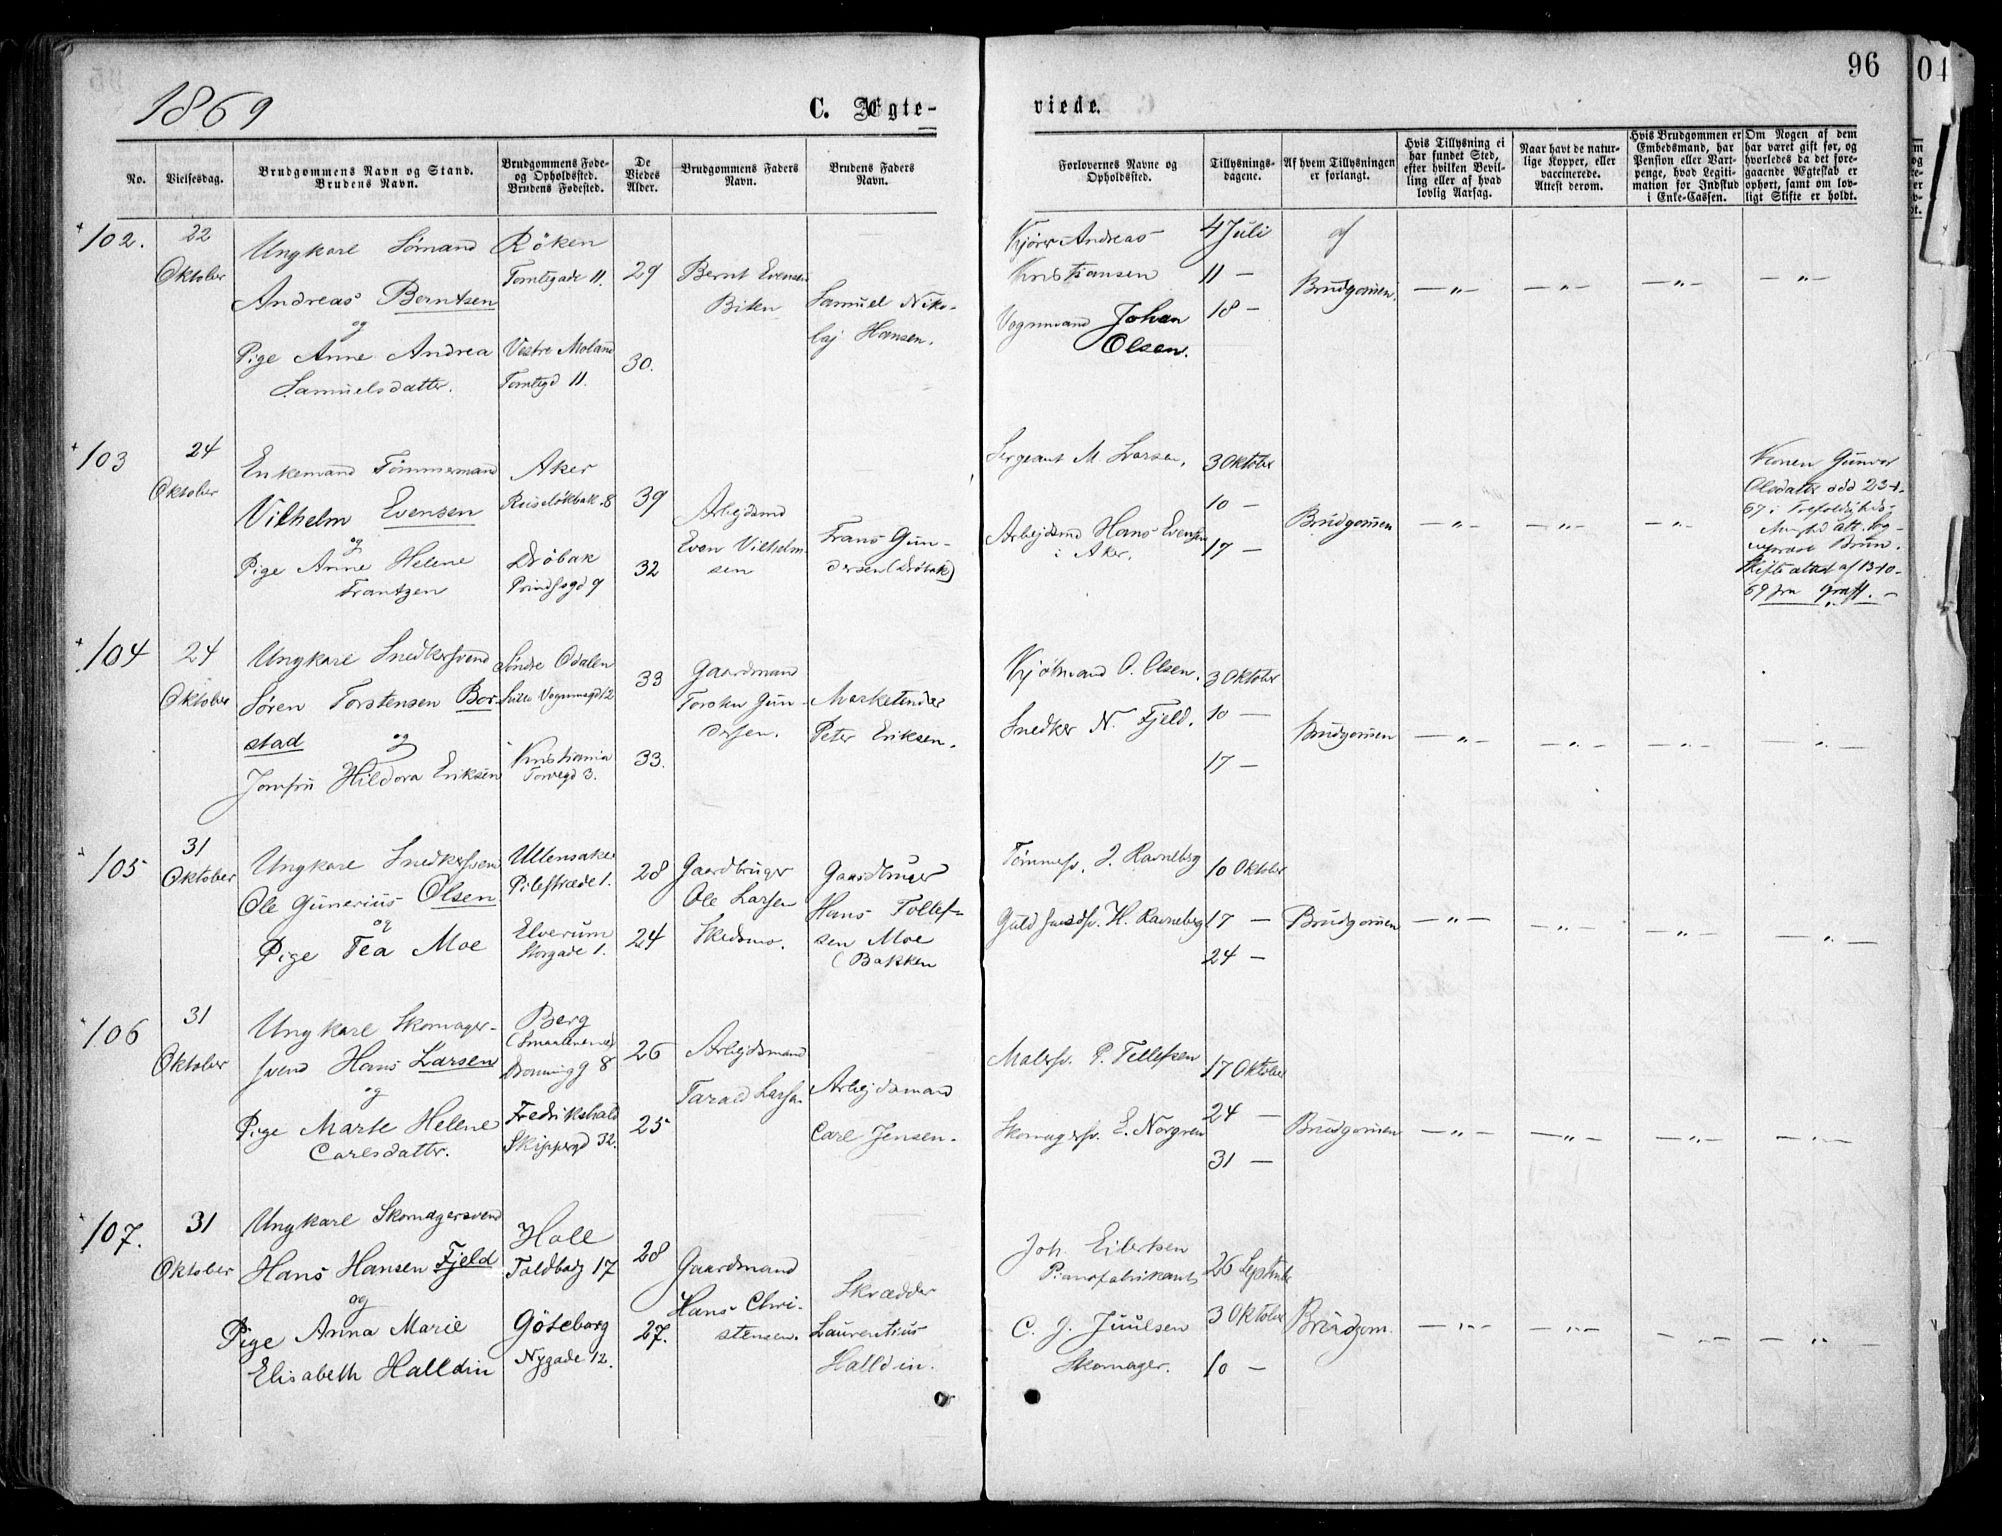 96
04
1869
C. Ægte-
viede.
No.
Vielsesdag.
Brudgommens Navn og Stand.
Brudens Navn.
Brudgommens Føde-
og Opholdssted.
Brudens Fødested.
De
Viedes
Alder.
Brudgommens Faders
Navn.
Brudens Faders
Navn.
Forlovernes Navne og
Opholdssted.
Tillysnings-
dagene.
Af hvem Tillysningen
er forlangt.
Hvis Tillysning ei
har fundet Sted,
efter hvilken Bevil-
ling eller af hvad
lovlig Aarsag.
Naar havt de natur-
lige Kopper, eller
vaccinerede.
Attest derom.
Hvis Brudgommen er
Embedsmand, har
Pension eller Vart-
penge, hvad Legiti-
mation for Indskud
i Enke-Cassen.
Om Nogen af dem
har været gift før, og
hvorledes da det fore-
gaaende Ægteskab er
ophørt, samt om lov-
ligt Skifte er holdt.
102.
22
Oktober
Ungkarl Sömand
Andreas Berntsen
og
Pige Anne Andrea
Samuelsdatter.
Röken
Tomtegade 11.
Vestre Moland
Tomtegd 11.
29
30.
Bernt Evensen
Biten
Samuel Niko-
laj Hansen.
Kjörer Andreas
Kristiansen
Vognmand Johan
Olsen.
4 Juli
11 —
18 —
af
Brudgomen.
— „ —
— „ —
— „ —
— „ —
103
24
Oktober
Enkemand Tömmermand
Vilhelm Evensen
og
Pige Anne Helene
Frantzen
Aker
Ruselökbak. 8
Dröbak
Prindsegd 9
39
32
Arbejdsmd
Even Vilhelm-
sen
Frans Gun-
dersen (Dröbak)
Sergeant M Larsen,
Arbejdsmd Hans Evensen
i Aker.
3 Oktober
10 —
17 —
Brudgomen
— „ —
— „ —
— „ —
Konen Gunvor
Olsdatter död 23-1-
67 i Trefoldigheds-
Skifteattest af 13-10-
69
104
24
Oktober
Ungkarl Snedkersvend
Sören Torstensen Bor-
stad
og
Jomfru Hildora Eriksen
Söndre Odalen
Lille Vognmagd 12
Kristiania
Torvegd 3.
33
33.
Gaardmand
Torsten Gun-
dersen.
Marketender
Peter Eriksen.
Kjötmand O. Olsen.
Snedker N. Fjeld.
3 Oktober
10 —
17 —
Brudgomen
— „ —
— „ —
— „ —
— „ —
105
31
Oktober
Ungkarl Snedkersven
Ole Gunerius Olsen
og
Pige Tea Moe
Ullensaker
Pilestræde 1.
Elverum
Storgade 1.
28
24
Gaardbruger
Ole Larsen
Skedsmo.
Gaardbruger
Hans Tollef-
sen Moe
(Bakken
Tömmersv. J. Ravneberg
Guldsmedsv. H. Ravneberg
10 Oktober
17 —
24 —
Brudgomen
— „ —
— „ —
— „ —
— „ —
106
31
Oktober
Ungkarl Skomager-
svend Hans Larsen
og
Pige Marte Helene
Carlsdatter.
Berg
(Smaalenene)
Dronningg 8
Fredrikshald
Skippergd 32.
26
25
Arbejdsmand
Tarald Larsen
Arbejdsmand
Carl Jensen.
Malersv. P. Tellefsen
Skomagersv. E. Norgren
17 Oktober
24 —
31 —
Brudgomen
— „ —
— „ —
— „ —
— „ —
107.
31
Oktober
Ungkarl Skomagersvend
Hans Hansen Fjeld
og
Pige Anna Marie
Elisabeth Halldin
Hole
Toldbodg 17
Göteborg
Nygade 12.
28
27.
Gaardmand
Hans Chri-
stensen.
Skrædder
Laurentius
Halldin.
Joh. Eilertsen
Pianofabrikant
C. J. Juulsen
Skomager.
26 September
3 Oktober
10 —
Brudgom.
— „ —
— „ —
— „ —
— „ —